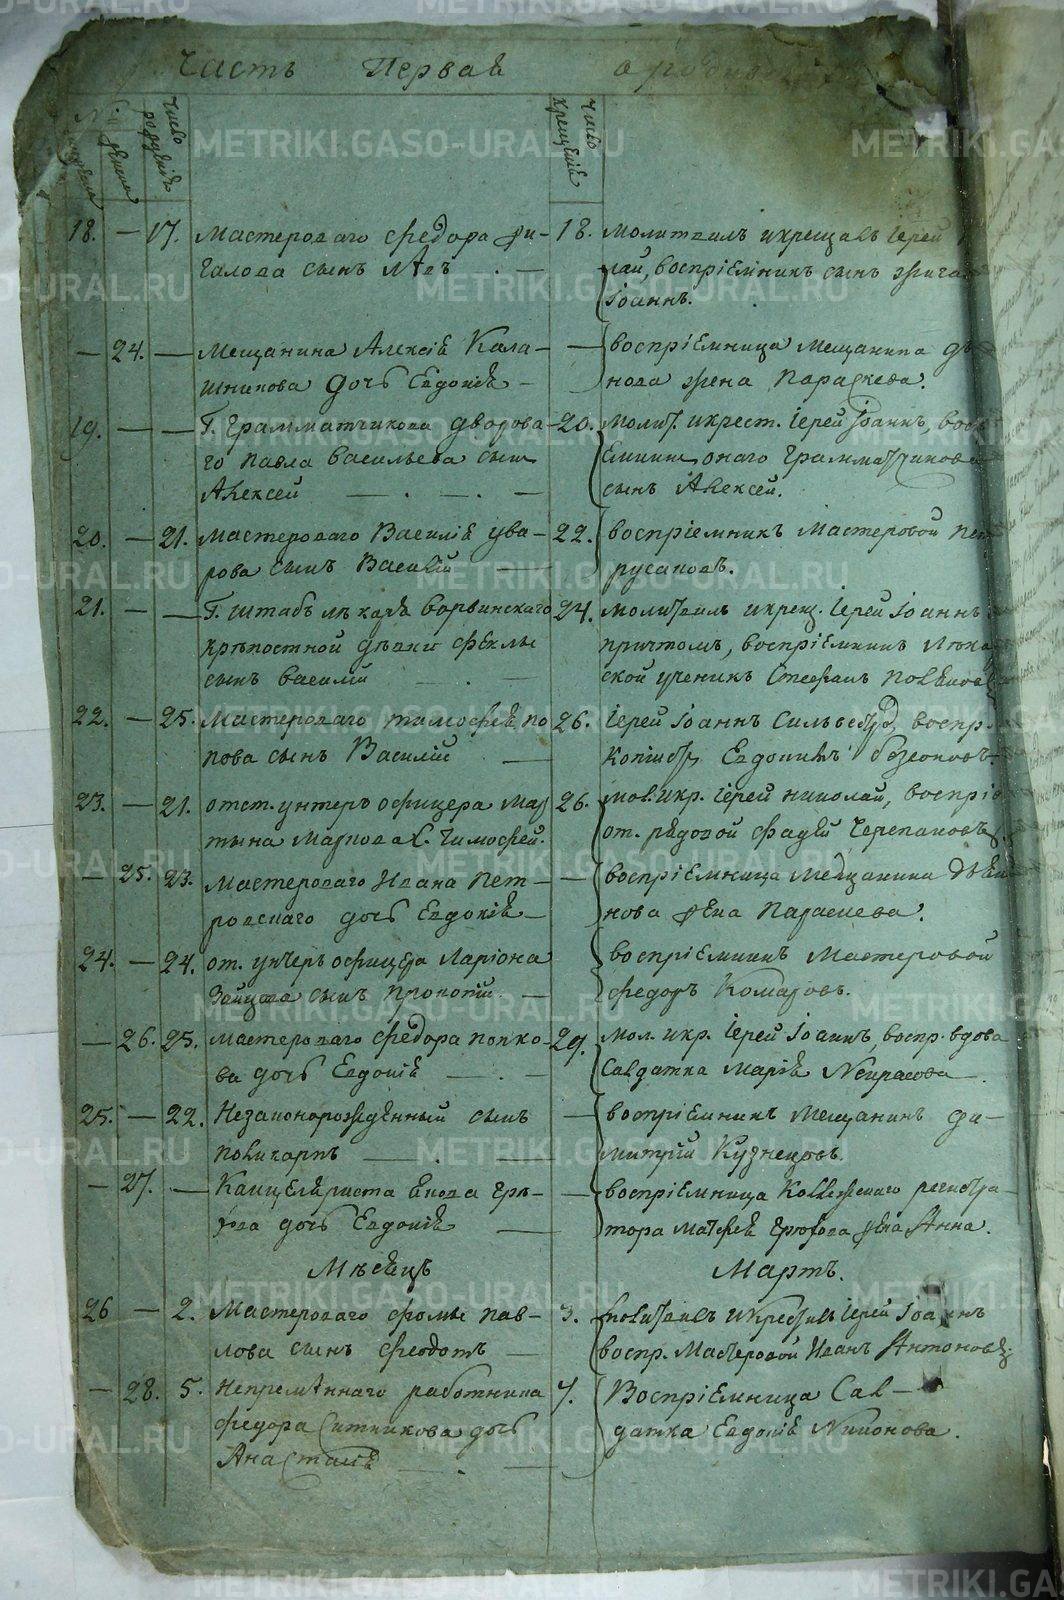 Часть Первая о родивш
Число рождения
Число крещения
18. — 17. Мастероваго Федора
сынъ Левъ . — 18. молитвилъ и крещалъ Іерей
лай, воспріемникъ сынъ
Іоаннъ.
— 24. — Мещанина Алексія Кала-
шникова дочь Евдокія — — воспріемница мещанина
нова жена Параскева.
19. — — Г. Грамматчикова дворова-
го Павла Васильева сынъ
Алексей — . — . — 20. молит. и крест. Іерей Іоаннъ, вос
емникъ онаго Грамматчикова
сынъ Алексей.
20. — 21. Мастероваго Василія Ува-
рова сынъ Василій — 22. воспріемникъ Мастеровой
русановъ.
21. — — Г. штабъ лѣкаря Барвинскаго
крѣпостной дѣвки Феклы
сынъ Василій — . — 24. молитвилъ и крещ. Іерей Іоаннъ
причтомъ, воспріемникъ Лѣка
ской ученикъ Стефанъ
22. — 25. Мастероваго Тимофея По
пова сынъ Василій — 26. Іерей Іоаннъ Сильвестр воспр.
Копіистъ Евдокимъ
23. — 21. отст. унтеръ офицера Мар
тына Маркова С. Тимофей. 26. мол. и кр. Іерей Николай, воспріе
от. рядовой Фадѣй Черепановъ
— 25. 23. Мастероваго Ивана Пет-
ровскаго дочь Евдокія — — воспріемница Мещанина
нова жена Параскева.
24. — 24. от. унтеръ офицера Ларіона
Зайцова сынъ Прокопій. — воспріемникъ Мастеровой
Федоръ Комаровъ.
— 26. 25. мастероваго Федора Попко-
ва дочь Евдокія — . — 29. мол. и кр. Іерей Іоаннъ, воспр. вдова
Салдатка Марія Некрасова
25. — 22. Незаконорожденный сынъ
Поликарпъ — . — — воспріемникъ Мещанинъ Ди-
митрій Кузнецовъ.
— 27. — Канцеляриста
дочь Евдокія — — воспріемница Коллежскаго регистра-
тора Матфея жена Анна.
Мѣсяцъ Мартъ.
26 — 2. Мастероваго Фомы Пав-
лова сынъ Феодотъ — 3. молитвилъ и крестилъ Іерей Іоаннъ
воспр. Мастеровой Иванъ Антоновъ
— 28. 5. Непремѣннаго работника
Федора Ситникова дочь
Анастасія — . — 7. Воспріемница Сал-
датка Евдокія Никонова.
METRIKI.GASO-URAL.RU